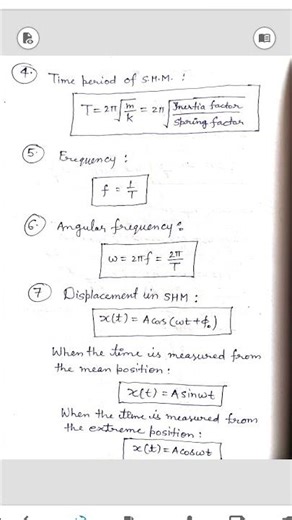 4. Time period of S.H.M. :
T = 2π√(m/k) = 2π√(Inertia factor/Spring factor)
5. Frequency :
f = 1/T
6. Angular frequency :
ω = 2πf = 2π/T
7 Displacement in SHM :
x(t) = A cos(ωt + ϕ₀)
When the time is measured from
the mean position :
x(t) = A sinωt
When the time is measured from
the extreme position :
x(t) = A cosωt